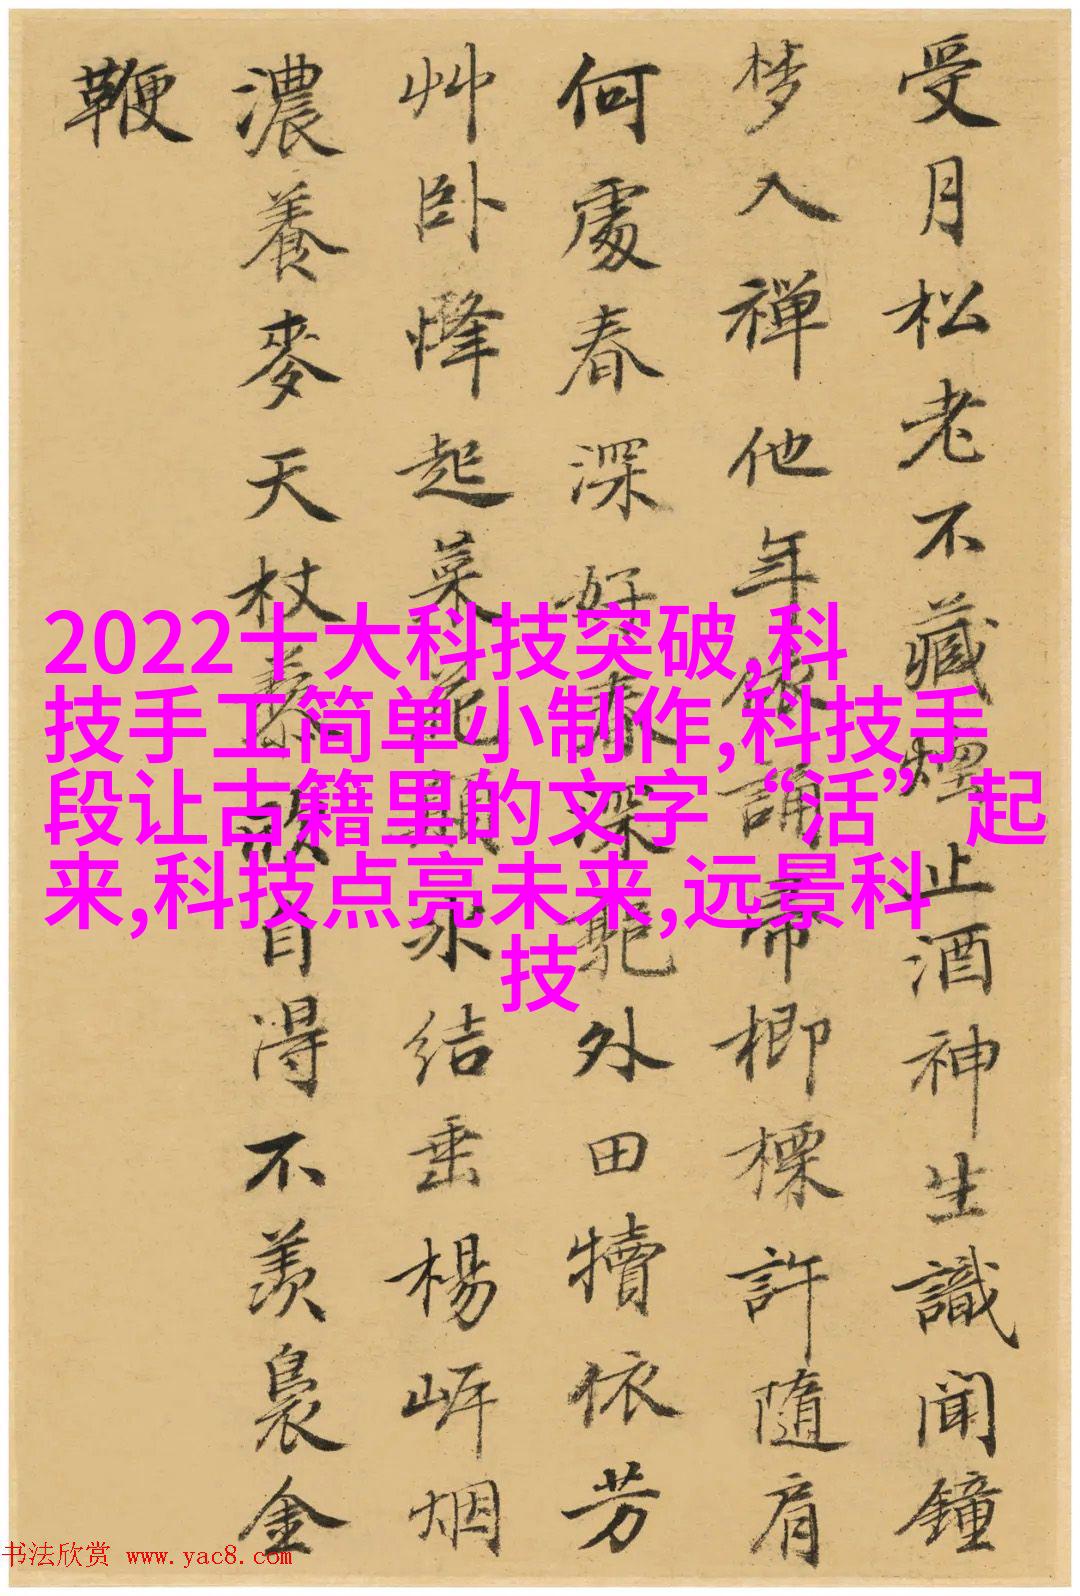 受月松老不藏煙止酒神生識聞鐘
梦入禅他年誦帚楖許隨肩
何處春深好春深外田犢依芳
艸卧起菜花顛水結垂楊岍烟
濃養麥天杖藜自得不羨裊金
鞭
2022十大科技突破,科
技手工简单小制作,科技手
段让古籍里的文字“活”起
来,科技点亮未来,远景科
技
书法欣赏 www.yac8.com